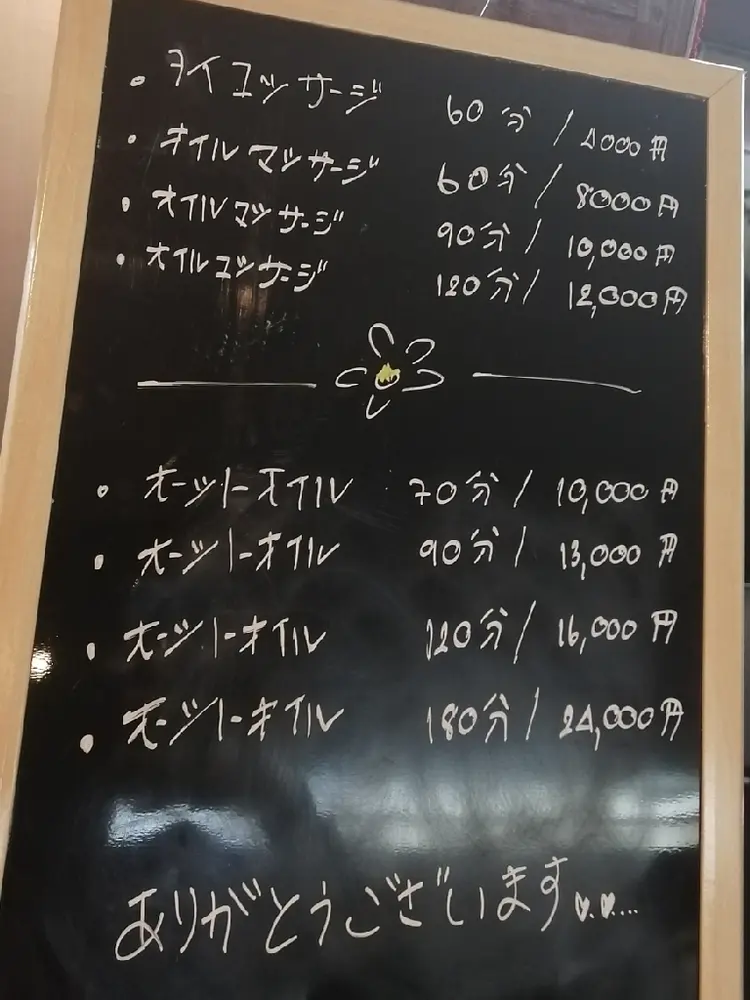 ・タイマッサージ 60分/4000円
・オイルマッサージ 60分/8000円
・オイルマッサージ 90分/10,000円
・オイルマッサージ 120分/12,000円
・オーットーオイル 70分/10,000円
・オーットーオイル 90分/13,000円
・オーットーオイル 120分/16,000円
・オーットーオイル 180分/24,000円
ありがとうございます♥.♥....